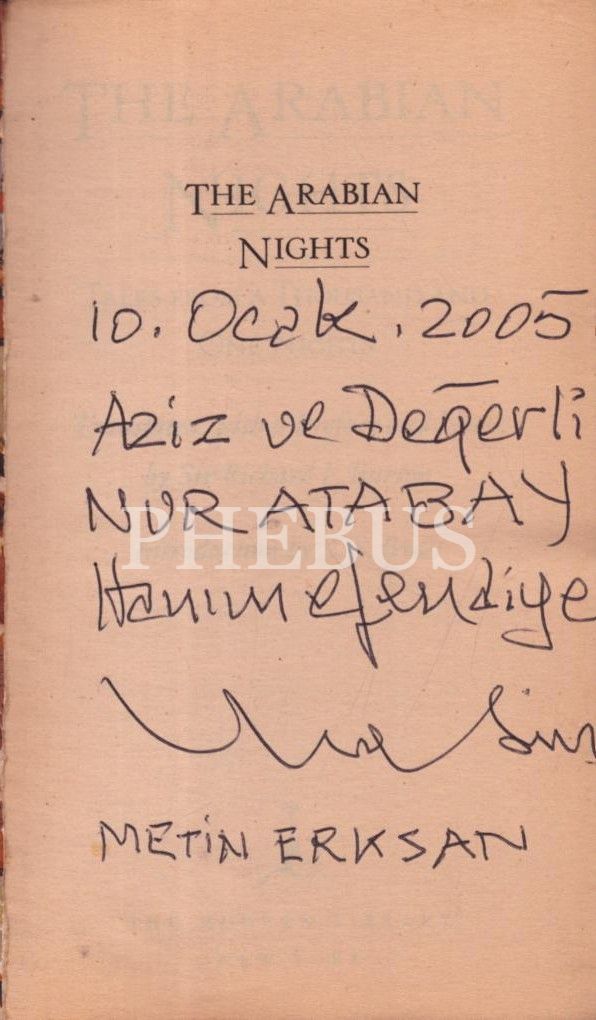 THE ARABIAN
NIGHTS
10. Ocak. 2005
Aziz ve Değerli
NUR ATABAY
PHEBUS
Hanımefendiye
METİN ERKSAN